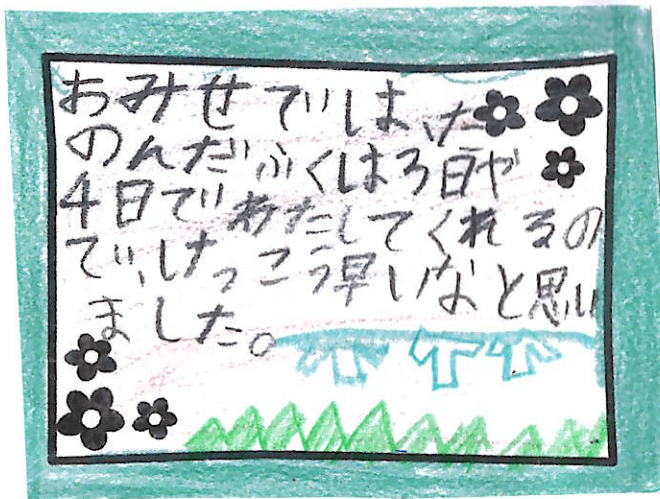 おみせでは、た
のんだふくは3日や
4日でわたしてくれるの
で、けっこう早いなと思い
ました。